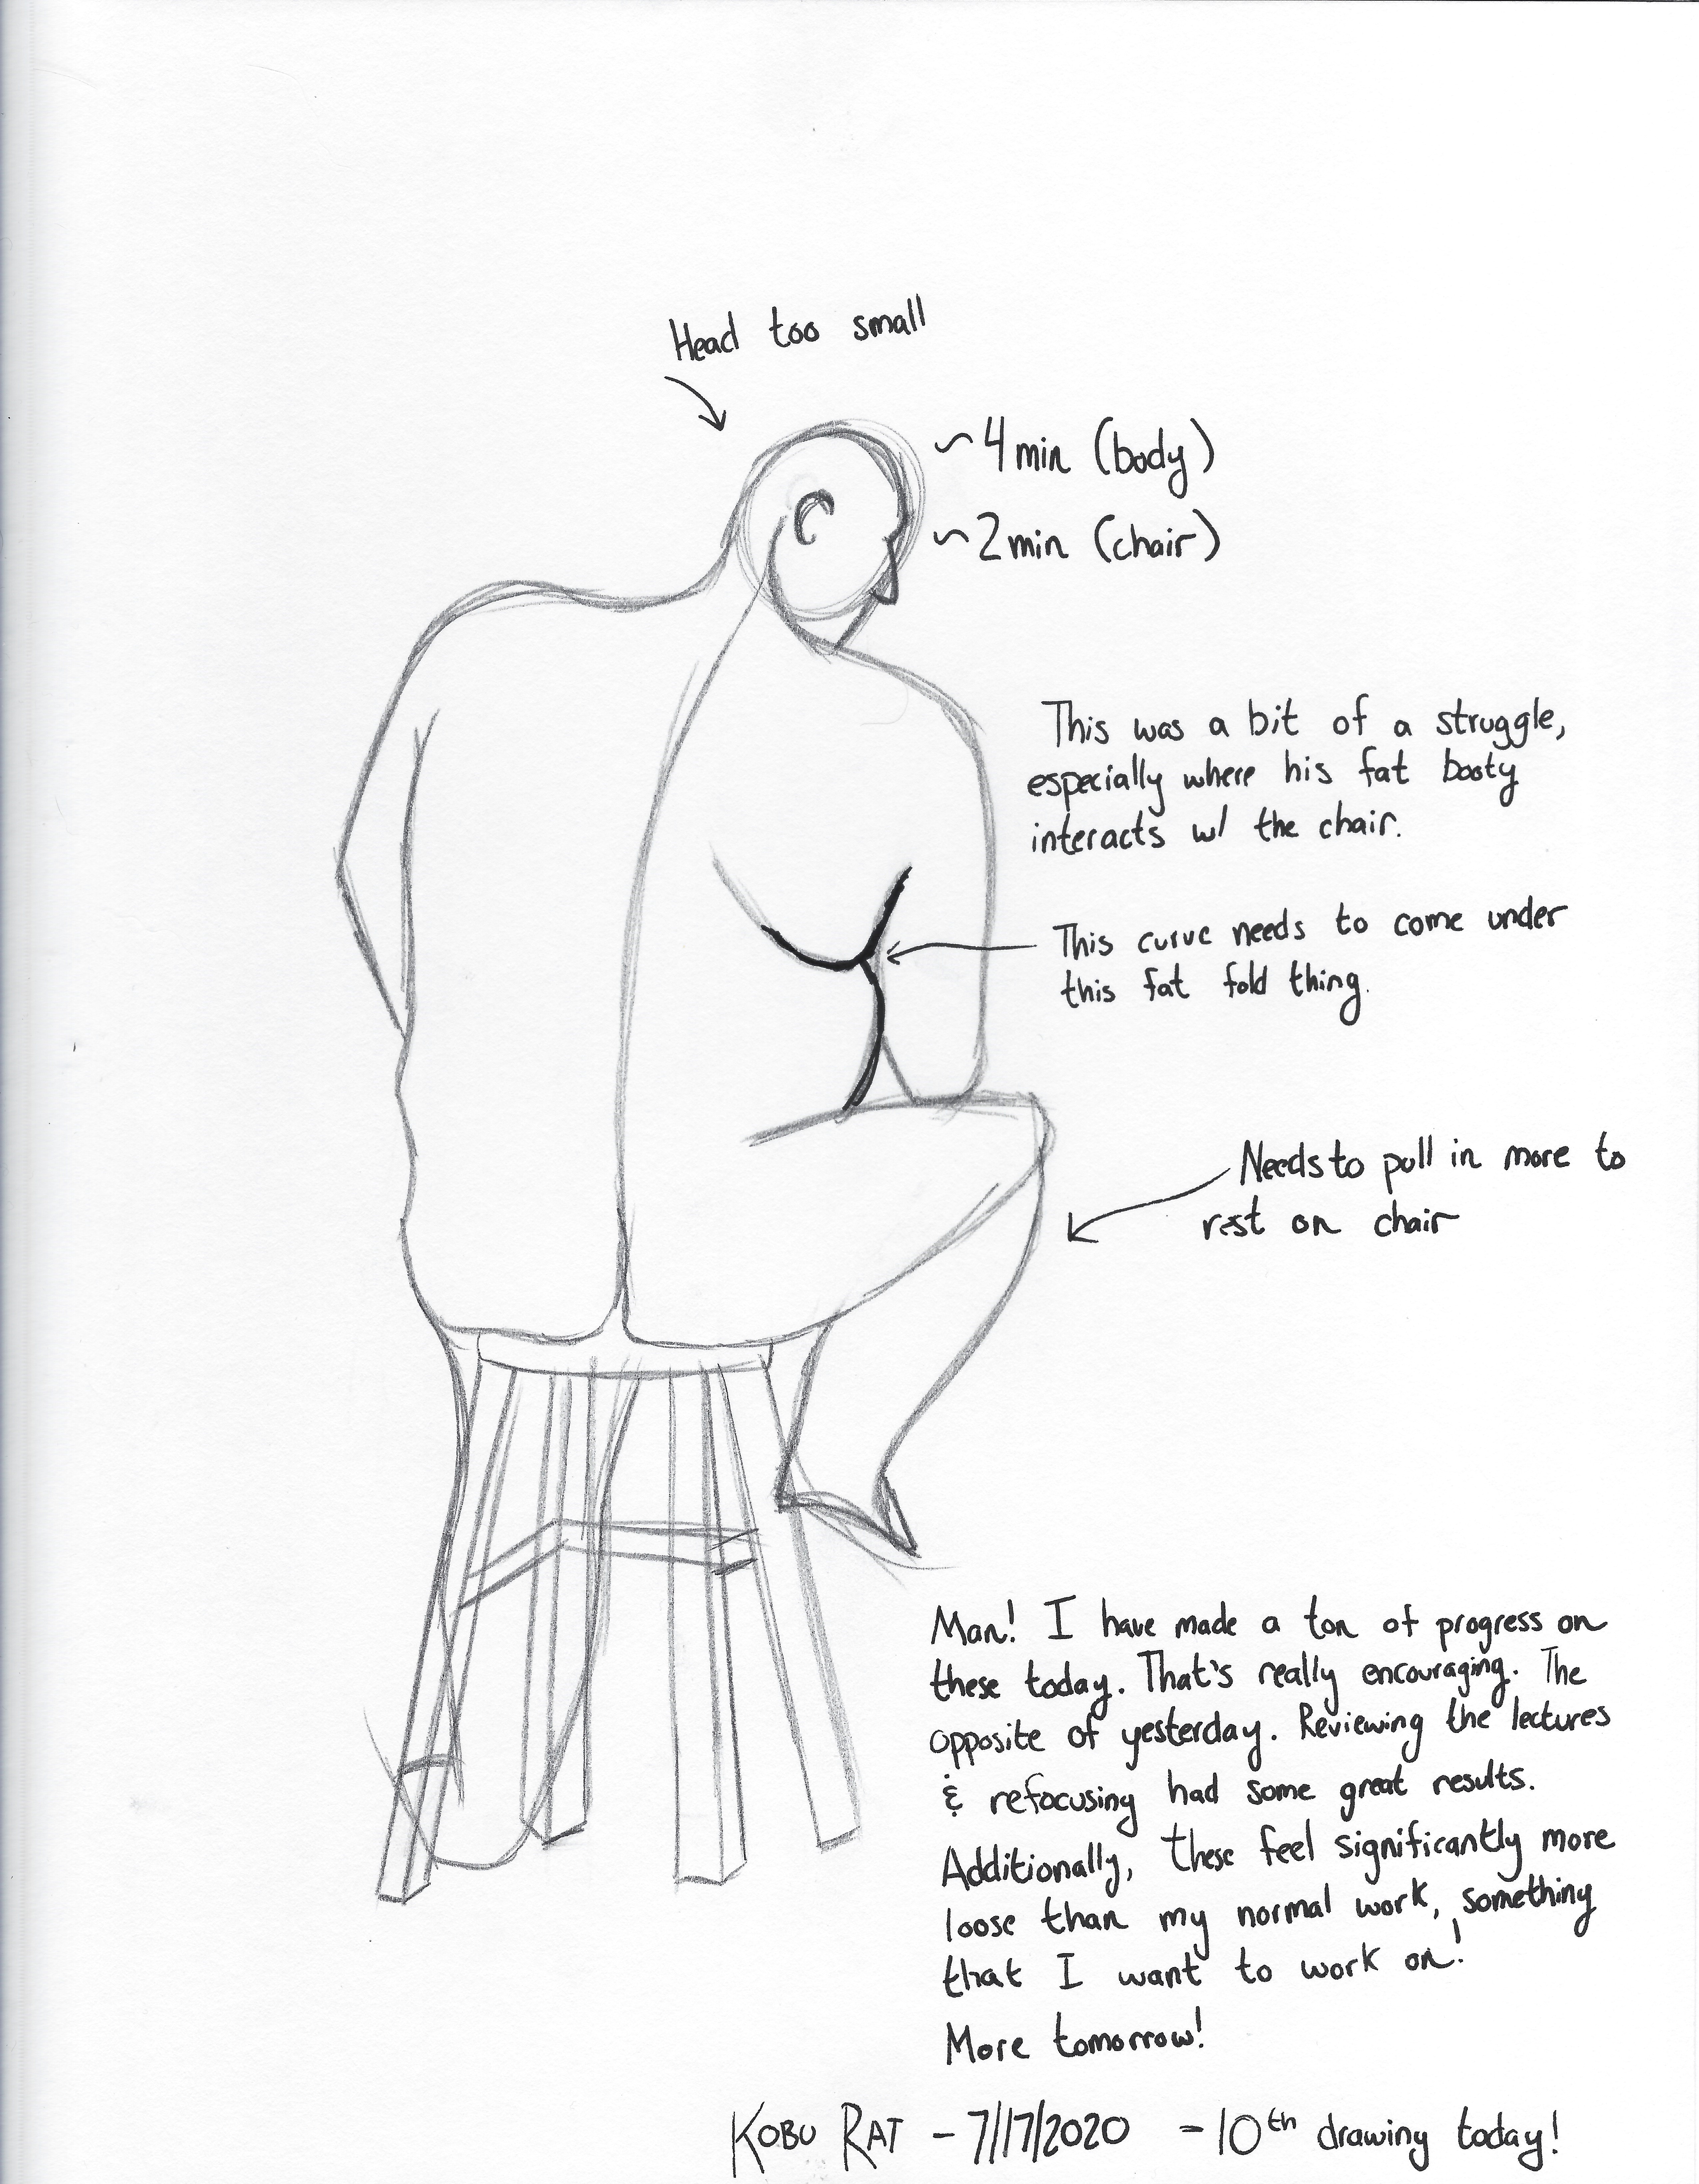 Head too small
~4 min (body)
~2 min (chair)
This was a bit of a struggle,
especially where his fat booty
interacts w/ the chair.
This curve needs to come under
this fat fold thing.
Needs to pull in more to
rest on chair
Man! I have made a ton of progress on
these today. That's really encouraging. The
opposite of yesterday. Reviewing the lectures
& refocusing had some great results.
Additionally, these feel significantly more
loose than my normal work, something
that I want to work on!
More tomorrow!
KOBU RAT - 7/17/2020 - 10th drawing today!